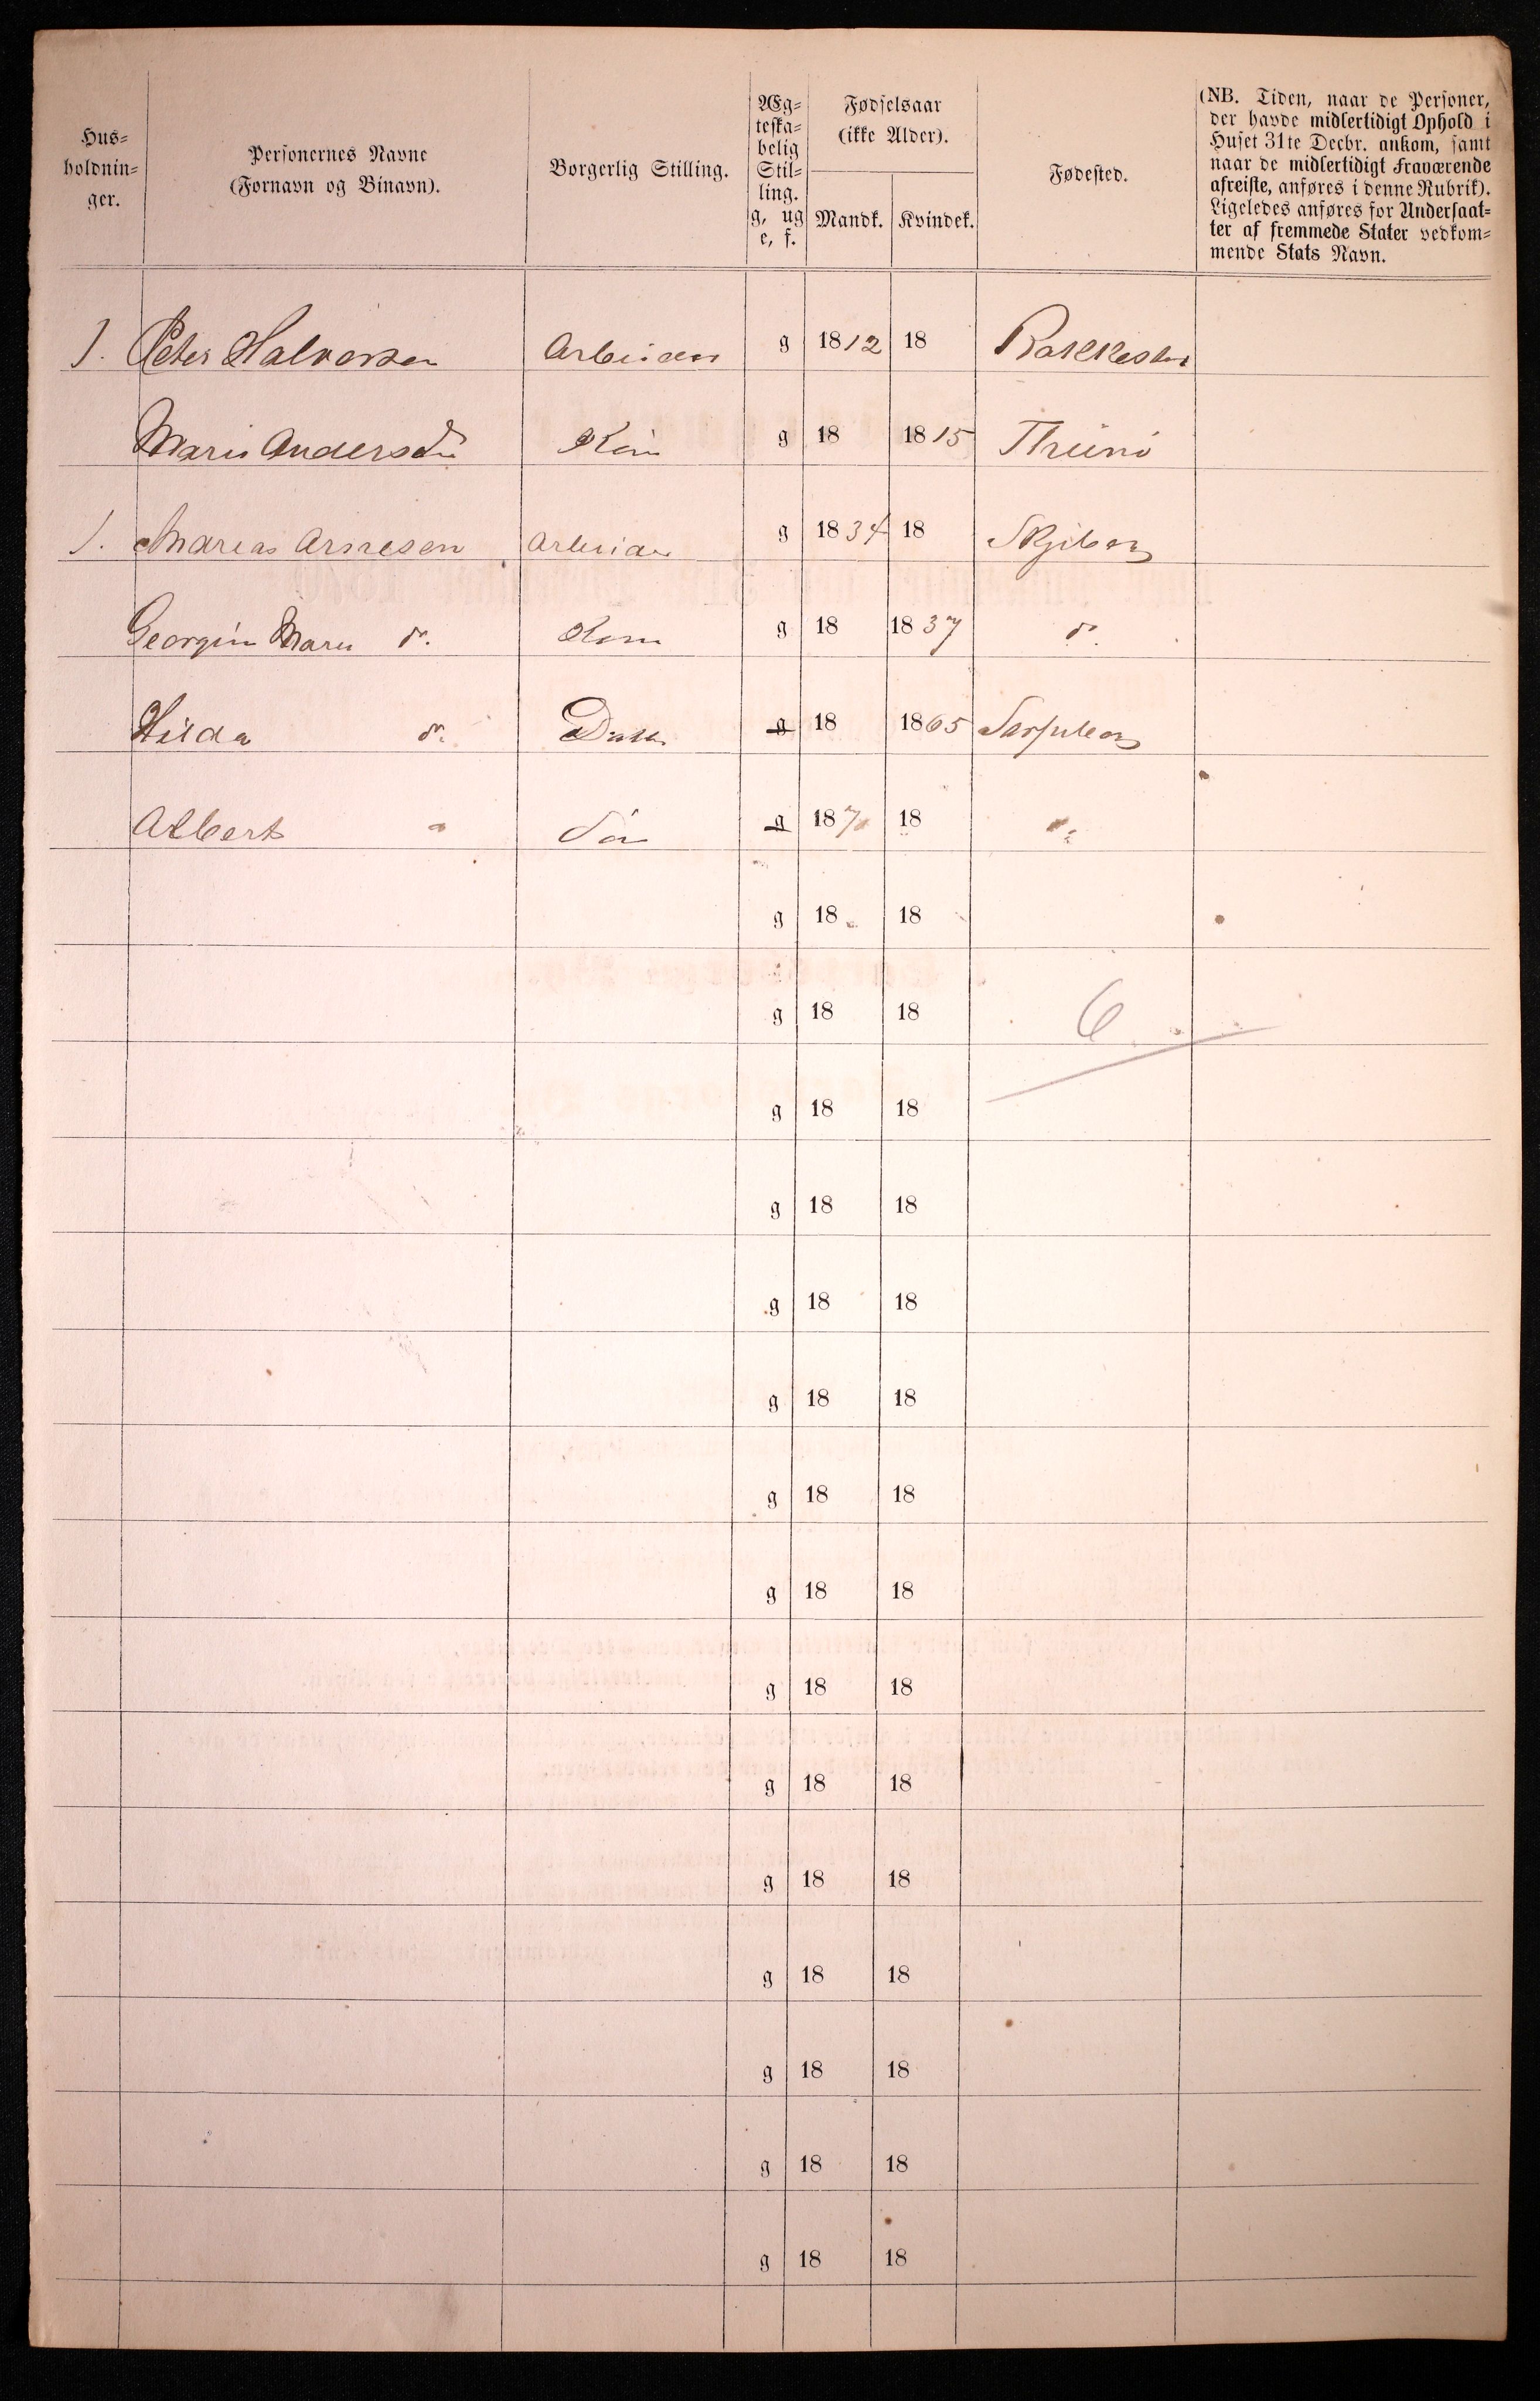 Hus-
holdnin-
ger.
Personernes Navne
(Fornavn og Binavn).
Borgerlig Stilling.
Æg-
teska-
belig
Stil-
ling.
g, ug
e, f.
Fødselsaar
(ikke Alder).
Mandk. Kvindek.
Fødested.
(NB. Tiden, naar de Personer,
der havde midlertidigt Ophold i
Huset 31te Decbr. ankom, samt
naar de midlertidigt Fraværende
afreiste, anføres i denne Rubrik).
Ligeledes anføres for Undersaat-
ter af fremmede Stater vedkom-
mende Stats Navn.
1. Peter Halvorsen Arbeider g 1812 18 Rakkestad
Marie Andersdr Kone g 18 1815 Thunø
1. Andreas Arnesen Arbeider g 1834 18 Skjeberg
Georgine Marie do. Kone g 18 1837 do.
Hilda do. Datter g 18 1865 Sarpsborg
Albert " Søn g 1870 18 "
g 18 18
g 18 18 6
g 18 18
g 18 18
g 18 18
g 18 18
g 18 18
g 18 18
g 18 18
g 18 18
g 18 18
g 18 18
g 18 18
g 18 18
g 18 18